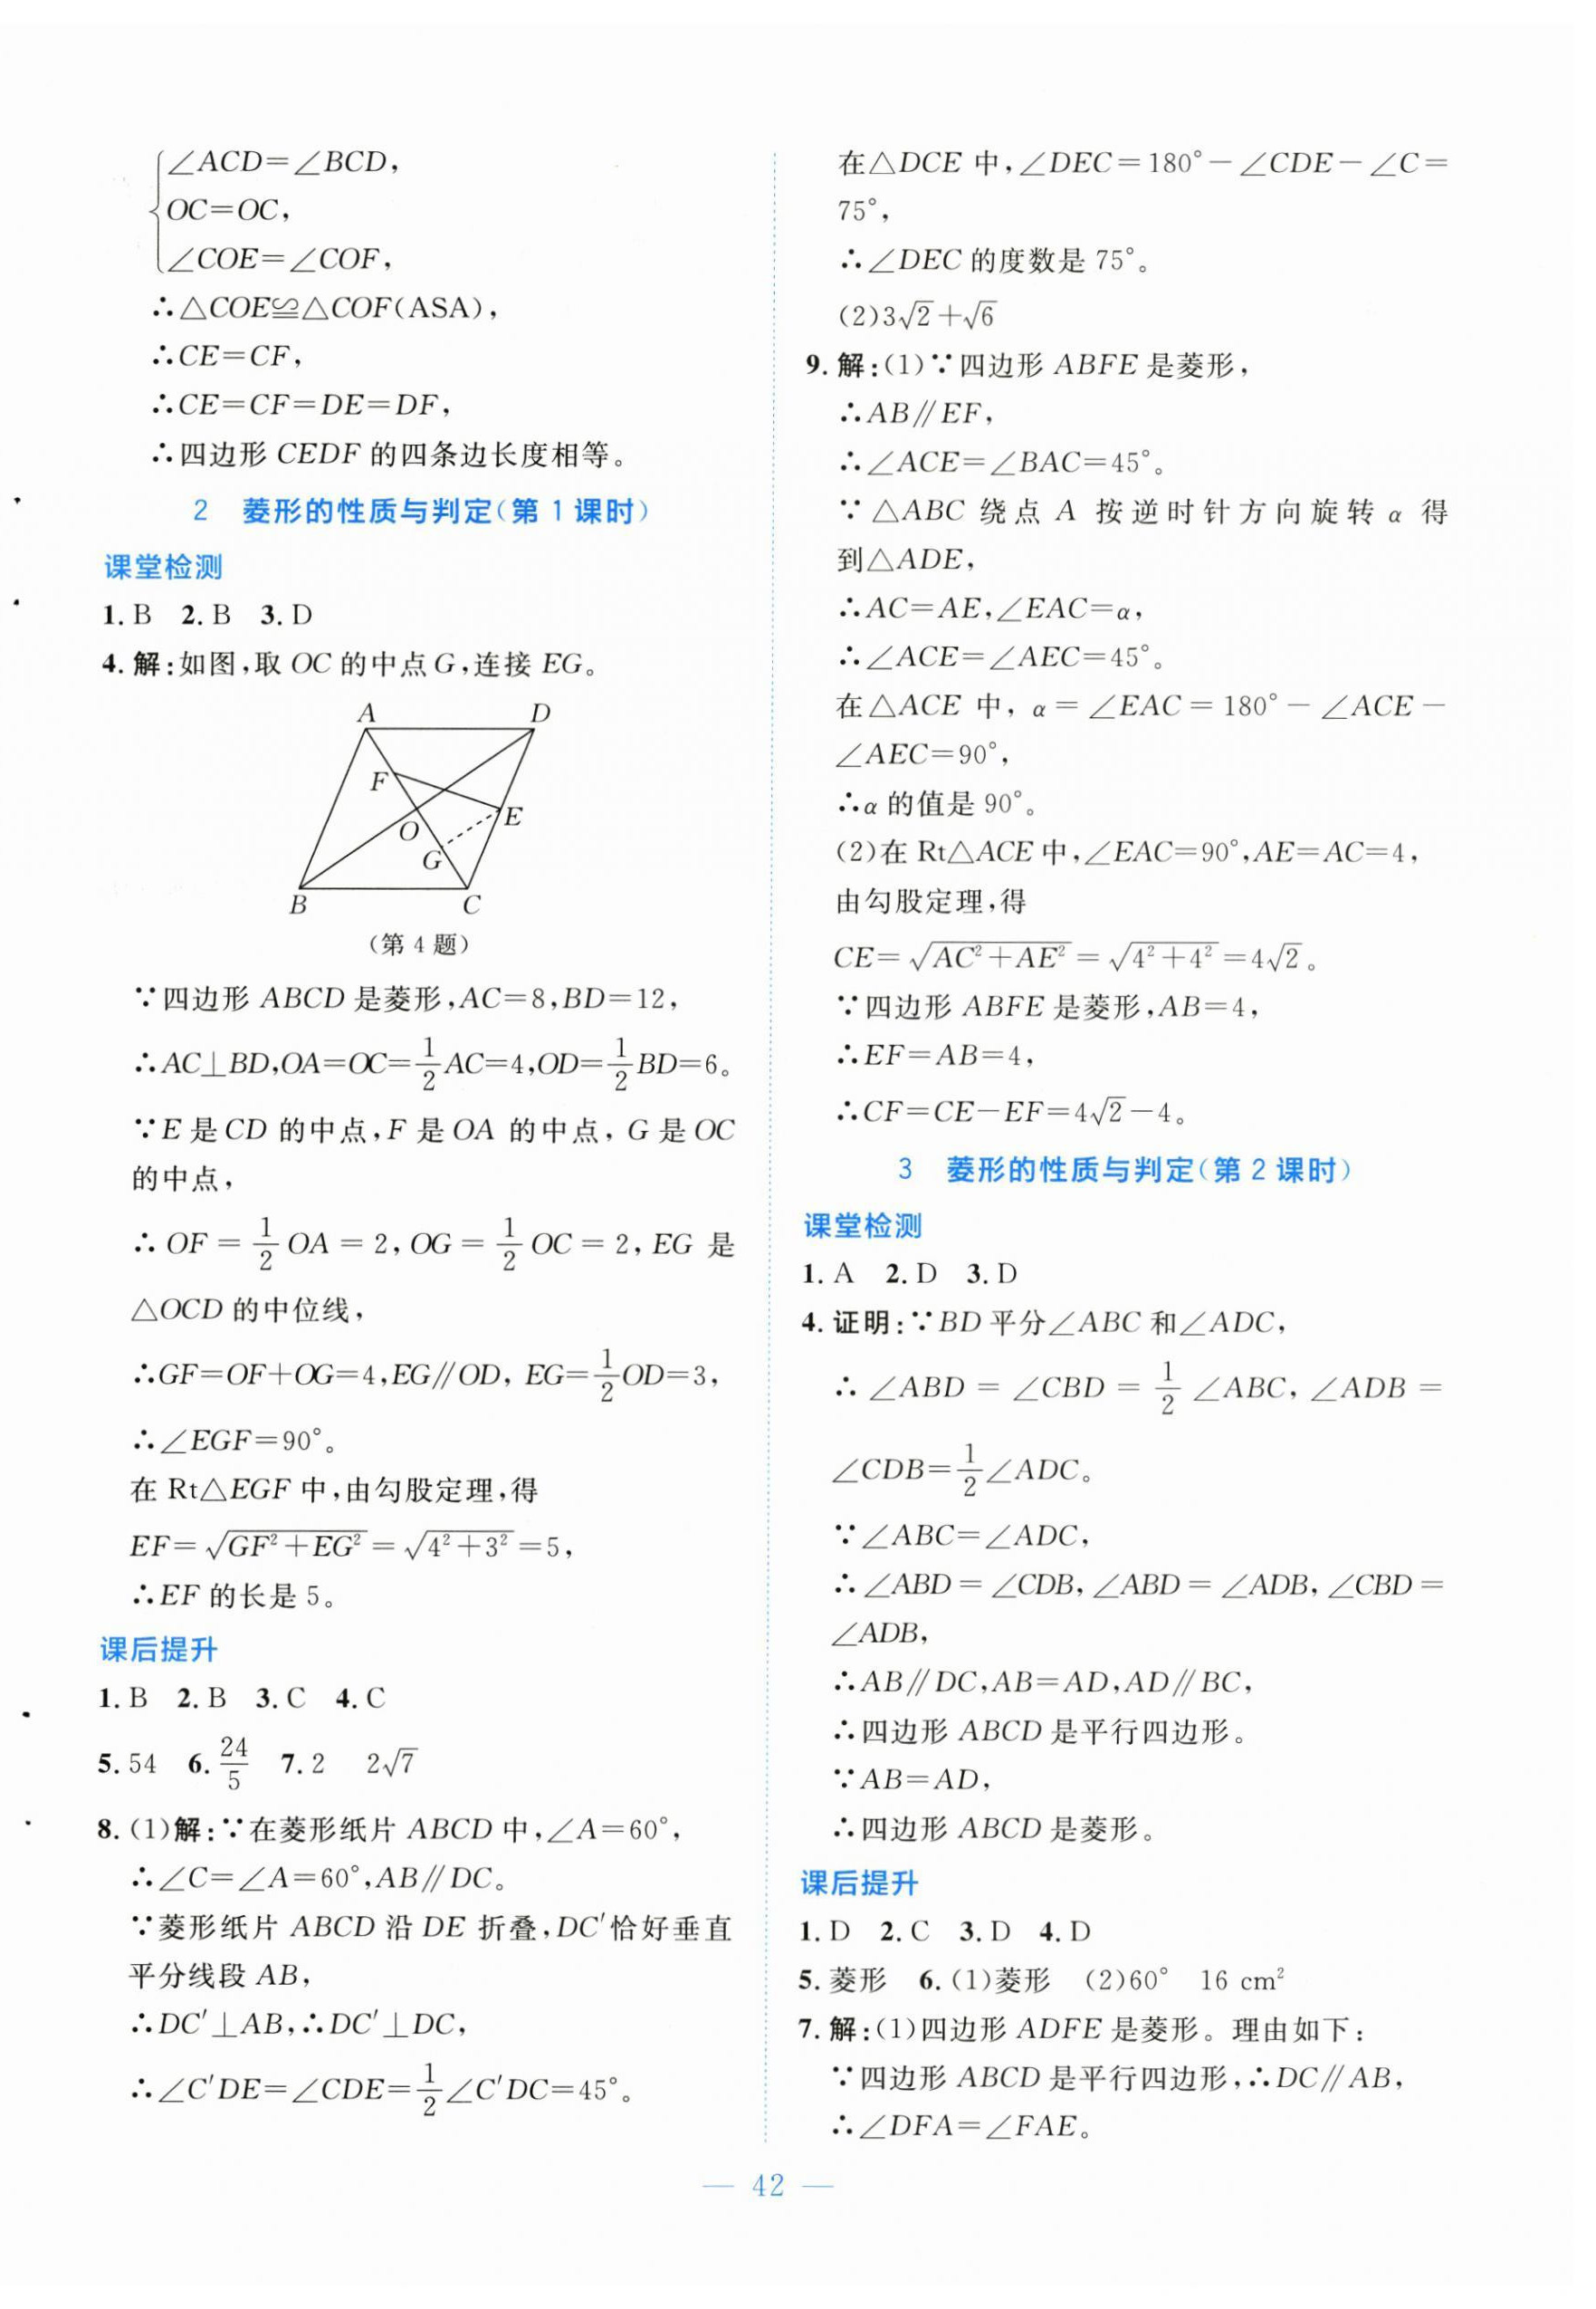 ∠ACD=∠BCD,
OC=OC,
∠COE=∠COF,
∴△COE≌△COF(ASA),
∴CE=CF,
∴CE=CF=DE=DF,
∴四边形 CEDF 的四条边长度相等。
2 菱形的性质与判定(第 1 课时)
课堂检测
1. B 2. B 3. D
4. 解:如图,取 OC 的中点 G,连接 EG。
A D
F
O E
G
B C
(第 4 题)
∵四边形 ABCD 是菱形,AC=8,BD=12,
∴AC⊥BD,OA=OC=1/2AC=4,OD=1/2BD=6。
∵E 是 CD 的中点,F 是 OA 的中点, G 是 OC
的中点,
∴ OF = 1/2 OA = 2, OG = 1/2 OC = 2, EG 是
△OCD 的中位线,
∴GF=OF+OG=4,EG∥OD, EG=1/2OD=3,
∴∠EGF=90°。
在 Rt△EGF 中,由勾股定理,得
EF=√(GF²+EG²)=√(4²+3²)=5,
∴EF 的长是 5。
课后提升
1. B 2. B 3. C 4. C
5. 54 6. 24/5 7. 2 2√7
8. (1)解:∵在菱形纸片 ABCD 中,∠A=60°,
∴∠C=∠A=60°,AB∥DC。
∵菱形纸片 ABCD 沿 DE 折叠,DC′恰好垂直
平分线段 AB,
∴DC′⊥AB,∴DC′⊥DC,
∴∠C′DE=∠CDE=1/2∠C′DC=45°。
在△DCE 中,∠DEC=180°-∠CDE-∠C=
75°,
∴∠DEC 的度数是 75°。
(2)3√2+√6
9. 解:(1)∵四边形 ABFE 是菱形,
∴AB∥EF,
∴∠ACE=∠BAC=45°。
∵△ABC 绕点 A 按逆时针方向旋转 α 得
到△ADE,
∴AC=AE,∠EAC=α,
∴∠ACE=∠AEC=45°。
在△ACE 中, α = ∠EAC = 180° - ∠ACE -
∠AEC=90°,
∴α 的值是 90°。
(2)在 Rt△ACE 中,∠EAC=90°,AE=AC=4,
由勾股定理,得
CE=√(AC²+AE²)=√(4²+4²)=4√2。
∵四边形 ABFE 是菱形,AB=4,
∴EF=AB=4,
∴CF=CE-EF=4√2-4。
3 菱形的性质与判定(第 2 课时)
课堂检测
1. A 2. D 3. D
4. 证明:∵BD 平分∠ABC 和∠ADC,
∴ ∠ABD = ∠CBD = 1/2 ∠ABC, ∠ADB =
∠CDB=1/2∠ADC。
∵∠ABC=∠ADC,
∴∠ABD=∠CDB,∠ABD=∠ADB,∠CBD=
∠ADB,
∴AB∥DC,AB=AD,AD∥BC,
∴四边形 ABCD 是平行四边形。
∵AB=AD,
∴四边形 ABCD 是菱形。
课后提升
1. D 2. C 3. D 4. D
5. 菱形 6. (1)菱形 (2)60° 16 cm²
7. 解:(1)四边形 ADFE 是菱形。理由如下:
∵四边形 ABCD 是平行四边形,∴DC∥AB,
∴∠DFA=∠FAE。
— 42 —